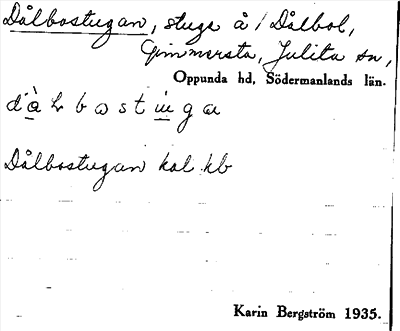 Dålbostugan, stuga å / Dålbol,
Gimmersta, Julita sn,
Oppunda hd, Södermanlands län.
dàlbostùga
Dålbostugan kal. kb
Karin Bergström 1935.